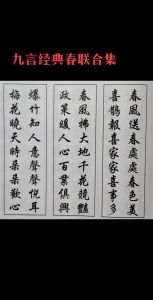 九言经典春联合集
春風送春處處春色美
喜鵲報喜家家喜事多
春風掃大地千花競豔
政策暖人心百業俱興
爆竹知人意聲聲悅耳
梅花曉天時朵朵歡心